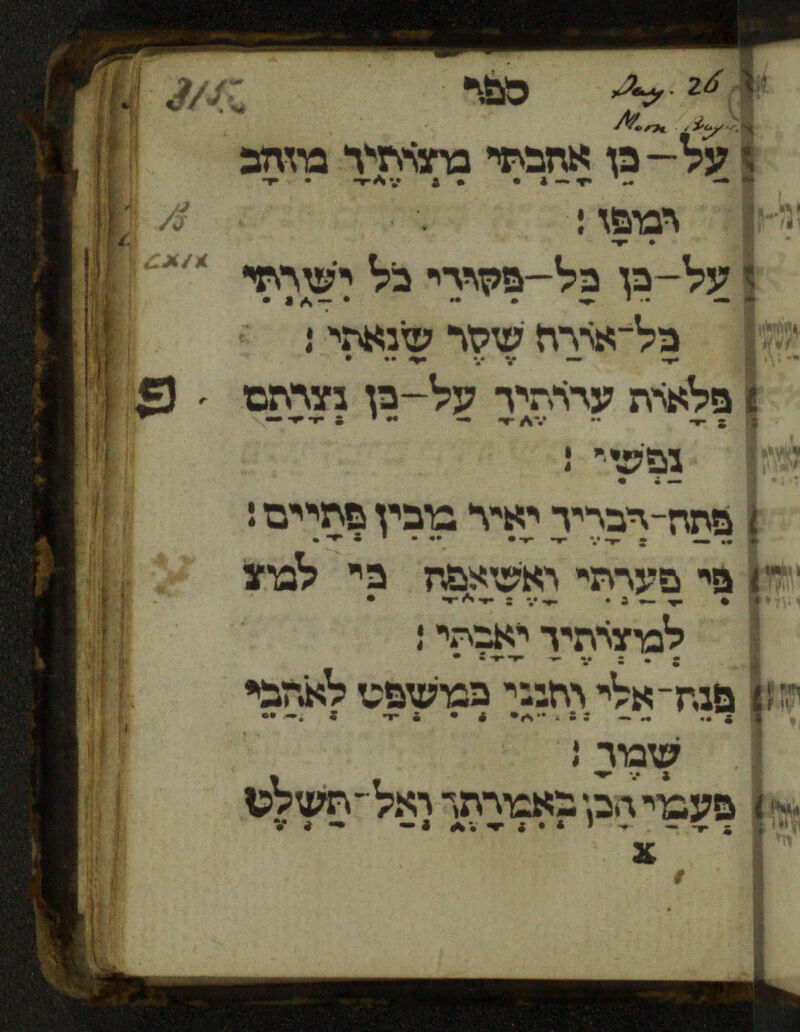 ספר
Day. 26
Morn Pray.
עַל־כֵּן אָהַבְתִּי מִצְוֹתֶיךָ מִזָּהָב
וּמִפָּז׃
CXIX
עַל־כֵּן כָּל־פִּקּוּדֵי כֹל יִשָּׁרְתִּי
כָּל־אֹורַח שֶׁקֶר שָׂנֵאתִי׃
פְּלָאֹות עֵדְוֹתֶיךָ עַל־כֵּן נְצָרָתַם פ
נַפְשִׁי׃
פֵּתַח־דְּבָרֶיךָ יָאִיר מֵבִין פְּתָיִים׃
פִּי פָעַרְתִּי וָאֶשְׁאָפָה כִּי למצ
לְמִצְוֹתֶיךָ יָאָבְתִּי׃
פְּנֵה־אֵלַי וְחָנֵּנִי כְּמִשְׁפָּט לְאֹהֲבֵי
שְׁמֶךָ׃
פְּעָמַי הָכֵן בְּאִמְרָתֶךָ וְאַל־תַּשְׁלֶט
x